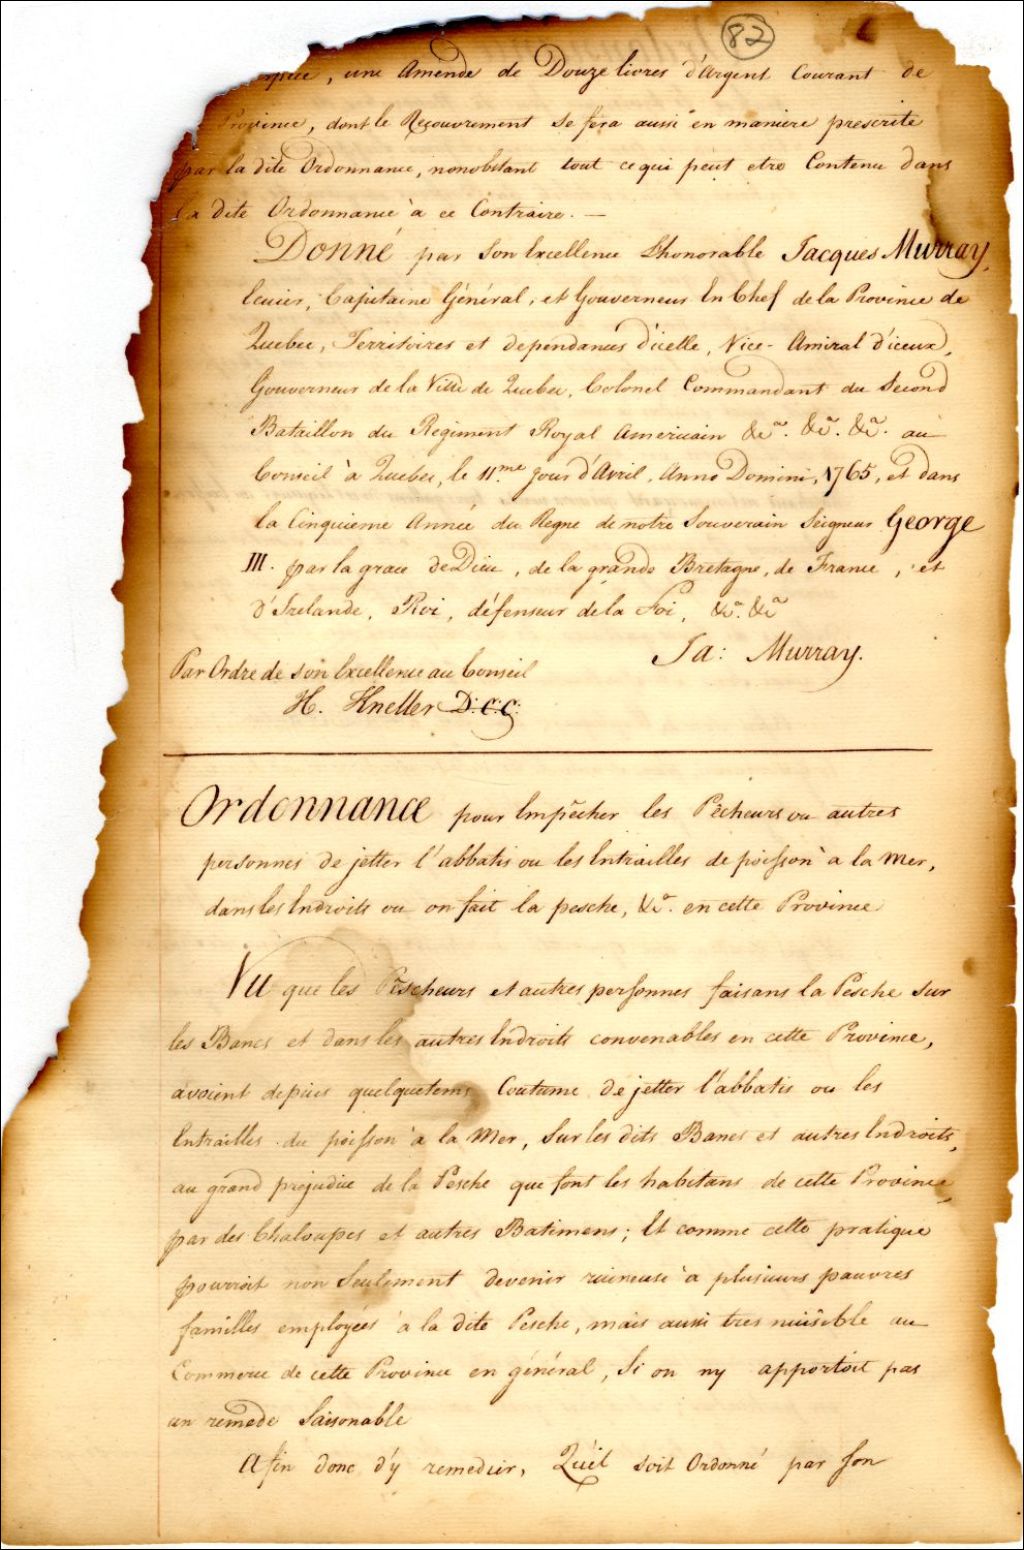 82
une Amende de Douze livres d'Argent Courant de
Province, dont le Reçouvrement se fera aussi en maniere prescrite
par la dite Ordonnance, nonobstant tout ce qui peut etre Contenu dans
la dite Ordonnance à ce Contraire. —
Donné par Son Excellence L'honorable Jacques Murray,
Ecuier, Capitaine Général, et Gouverneur En Chef de la Province de
Quebec, Territoires et dependances d'icelle, Vice-Amiral d'iceux,
Gouverneur de la Ville de Quebec, Colonel Commandant du Second
Bataillon du Regiment Royal Americain &ca. &ca. &ca. au
Conseil à Quebec, le 11.me jour d'Avril, Anno Domini, 1765, et dans
la Cinquieme Année du Regne de notre Souverain Seigneur George
III. par la grace de Dieu, de la grande Bretagne, de France, et
d'Irelande, Roi, défenseur de la Foi, &ca. &ca
Ja: Murray.
Par Ordre de son Excellence au Conseil
H. Kneller D:C:C:
Ordonnance pour Empêcher les Pêcheurs ou autres
personnes de jetter l'abbatis ou les Entrailles de poisson à la Mer,
dans les Endroits ou on fait la pesche, &ca. en cette Province
Vu que les Pêscheurs et autres personnes faisans la Pesche sur
les Bancs et dans les autres Endroits convenables en cette Province,
avoient depuis quelquetems Coutume de jetter l'abbatis ou les
Entrailles du poisson à la Mer, Sur les dits Bancs et autres Endroits,
au grand prejudice de la Pesche que font les habitans de cette Province,
par des Chaloupes et autres Batimens; Et comme cette pratique
pourroit non Seulement devenir ruineuse à plusieurs pauvres
familles employées à la dite Pesche, mais aussi tres nuisible au
Commerce de cette Province en général, Si on ny apportoit pas
un remede Saisonable
Afin donc d'y remedier, Qu'il soit Ordonné par Son